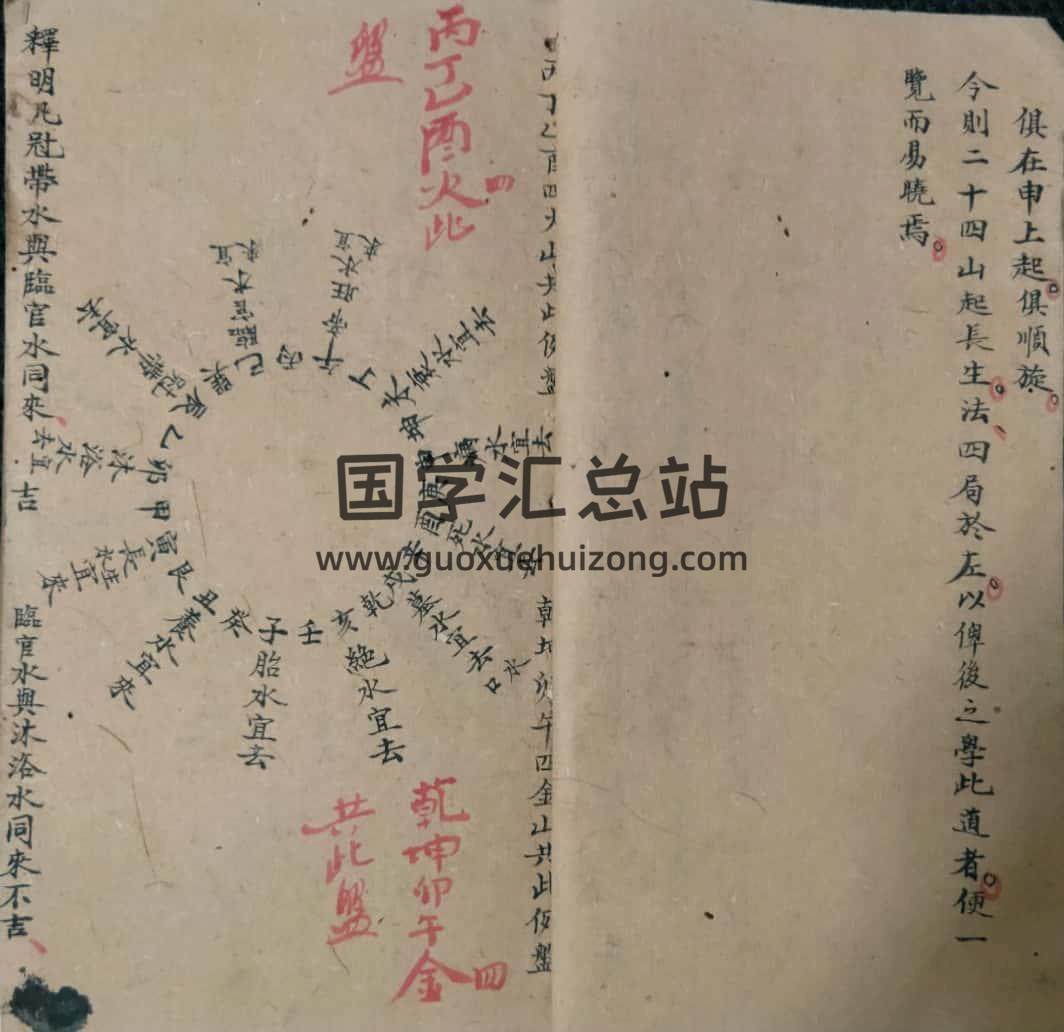 俱在申上起。俱順旋。
今則二十四山起長生。法四局於左。以俾後之學此道者。便一
覽而易曉焉。
丙丁乙酉四火山共此仮盤
乾坤卯午四金山共此仮盤
丙丁乙酉四火此
盤
乾坤卯午四金
共此盤
午帝旺水宜來
丙
巳臨官水宜來
巽
辰冠帶水宜來
乙
卯沐浴水宜去
甲
寅長生水宜來
艮
丑養水宜來
癸
子胎水宜去
壬
亥絕水宜去
乾
戌墓水宜去水口
辛
酉死水宜去
庚
申病水宜去
坤
未衰水宜去
丁
釋明凡冠帶水與臨官水同來、吉
臨官水與沐浴水同來不吉、
国学汇总站
www.guoxuehuizong.com